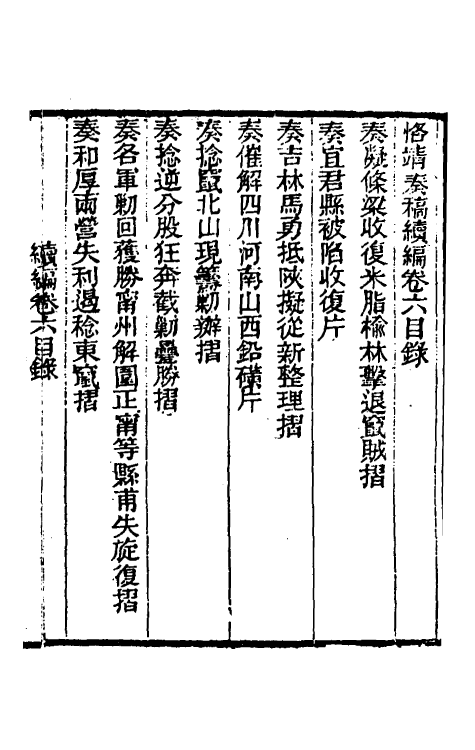 恪靖奏稿續編卷六目錄
奏凝條梁收復米脂榆林擊退竄賊摺
奏宜君縣被陷收復片
奏吉林馬勇抵陝擬從新整理摺
奏催解四川河南山西鉛磺片
奏捻竄北山現籌勦辦摺
奏捻逆分股狂奔截勦疊勝摺
奏各軍勦回獲勝甯州解圍正甯等縣甫失旋復摺
奏和厚兩營失利遏捻東竄摺
續編卷六目錄